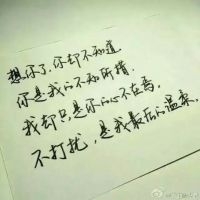 想你了,你却不知道.
你是我的不知所措.
我却只是你的心不在焉.
不打扰,是我最后的温柔.